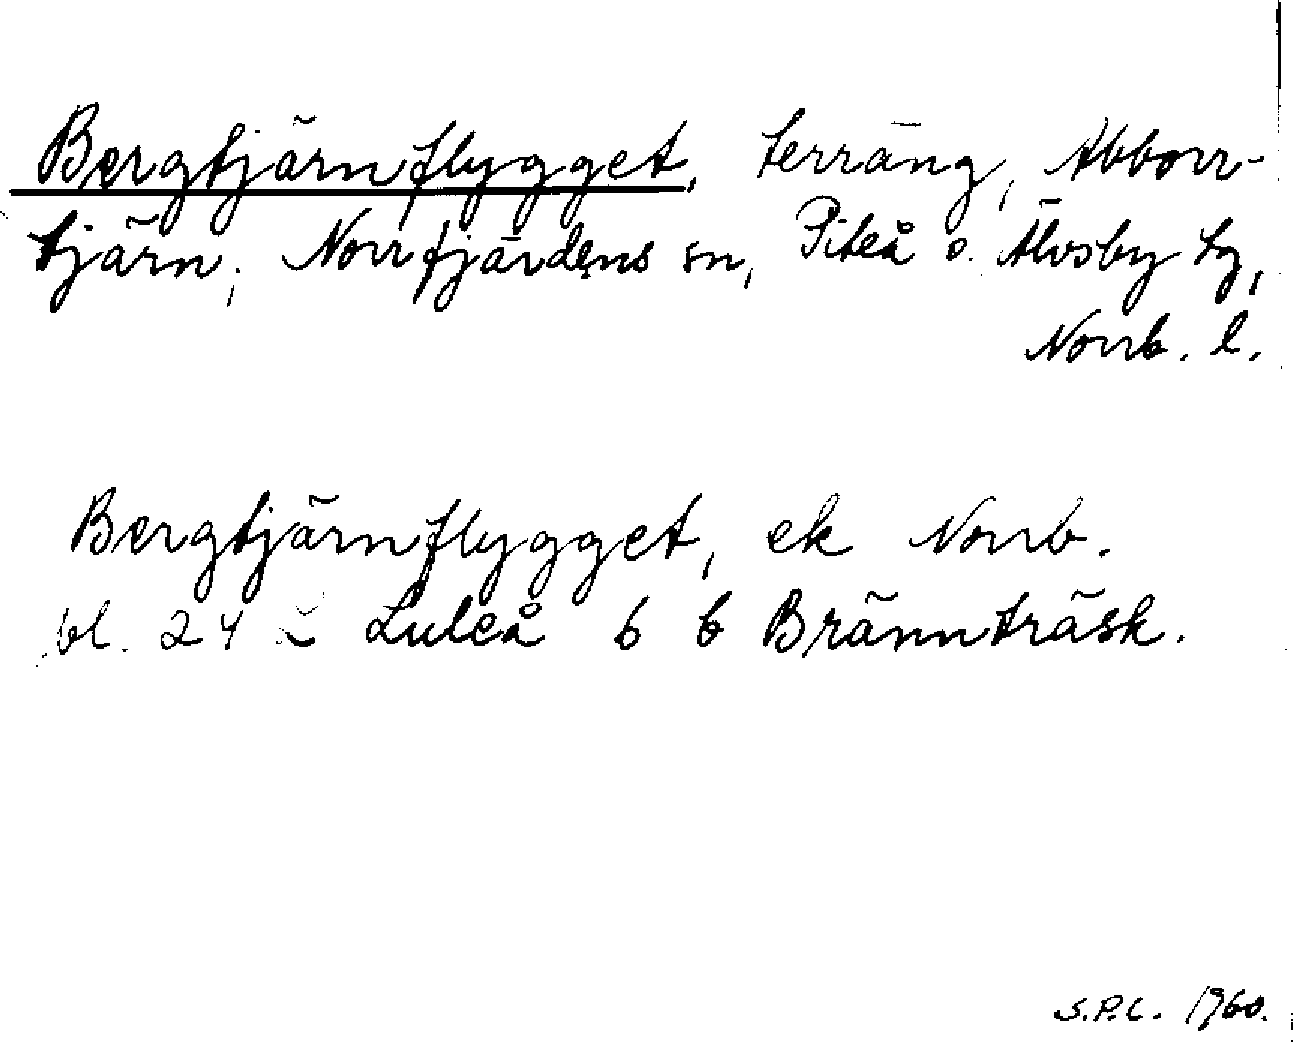 Bergtjärnflygget, terräng, Abborr-
tjärn, Norrfjärdens sn, Piteå o. Älvsby tg,
Norrb. l.
Bergtjärnflygget, ek Norrb.
bl. 24 Luleå 6 b Brännträsk.
S.P.C. 1960.